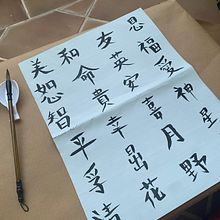 恩福愛神星
友英安喜月野
和命貴幸花
美恕智平孚情